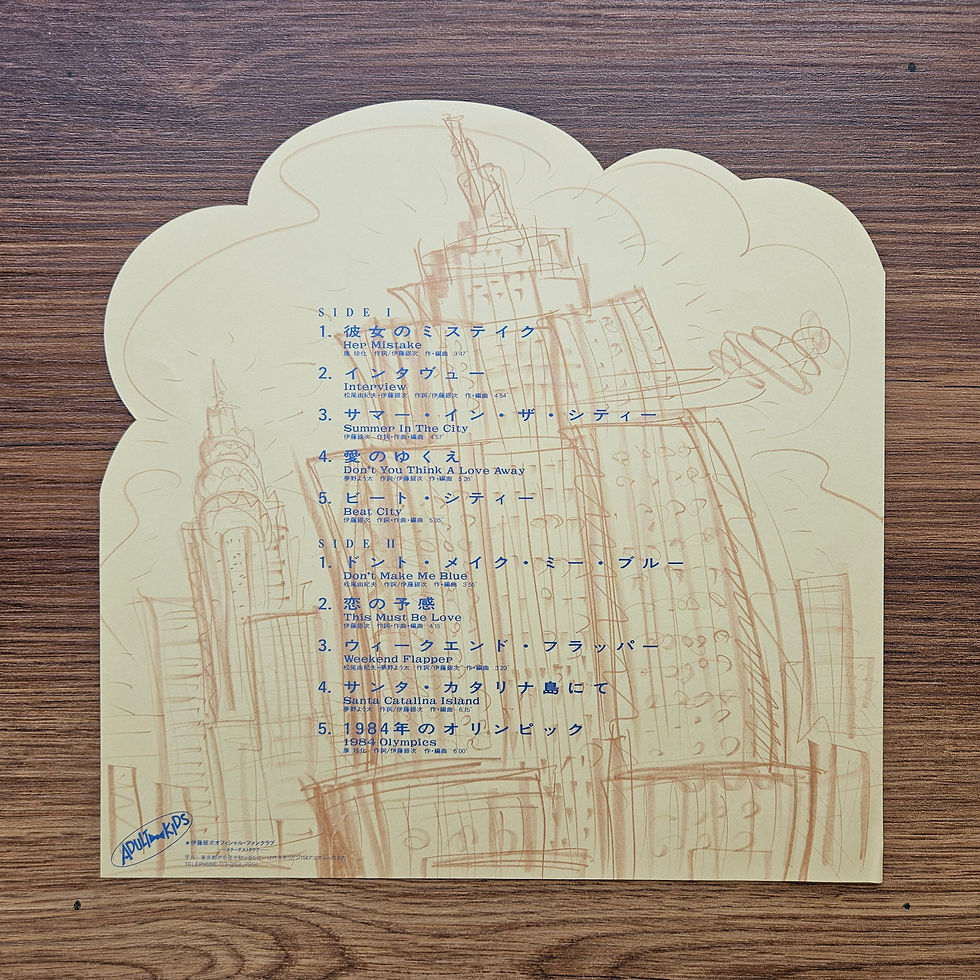 SIDE I
1. 彼女のミステイク
Her Mistake
康 珍化 作詞/伊藤銀次 作・編曲 3'47"
2. インタヴュー
Interview
松尾由紀夫・伊藤銀次 作詞/伊藤銀次 作・編曲 4'54"
3. サマー・イン・ザ・シティー
Summer In The City
伊藤銀次 作詞・作曲・編曲 4'57"
4. 愛のゆくえ
Don't You Think A Love Away
夢野よう太 作詞/伊藤銀次 作・編曲 5'26"
5. ビート・シティー
Beat City
伊藤銀次 作詞・作曲・編曲 5'05"
SIDE II
1. ドント・メイク・ミー・ブルー
Don't Make Me Blue
松尾由紀夫 作詞/伊藤銀次 作・編曲 3'55"
2. 恋の予感
This Must Be Love
伊藤銀次 作詞・作曲・編曲 4'15"
3. ウィークエンド・フラッパー
Weekend Flapper
松尾由紀夫・夢野よう太 作詞/伊藤銀次 作・編曲 3'23"
4. サンタ・カタリナ島にて
Santa Catalina Island
夢野よう太 作詞/伊藤銀次 作・編曲 6'15"
5. 1984年のオリンピック
1984 Olympics
康 珍化 作詞/伊藤銀次 作・編曲 6'00"
ADULT KIDS
★伊藤銀次オフィシャル・ファンクラブ
スターダストクラブ
TELEPHONE